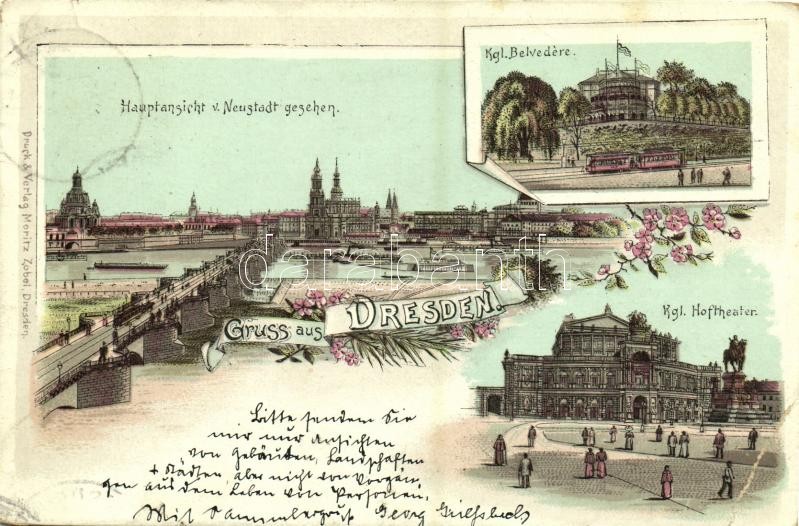 Kgl. Belvedère.
Hauptansicht v. Neustadt gesehen.
Druck & Verlag Moritz Zobel, Dresden.
darabanth
Gruss aus DRESDEN.
Kgl. Hoftheater.
Bitte senden Sie
mir nur Ansichten
von Gebäuden, Landschaften
+ Städten, aber nicht von Vorgän-
gen aus dem Leben von Personen.
Mit Sammlergruß Georg